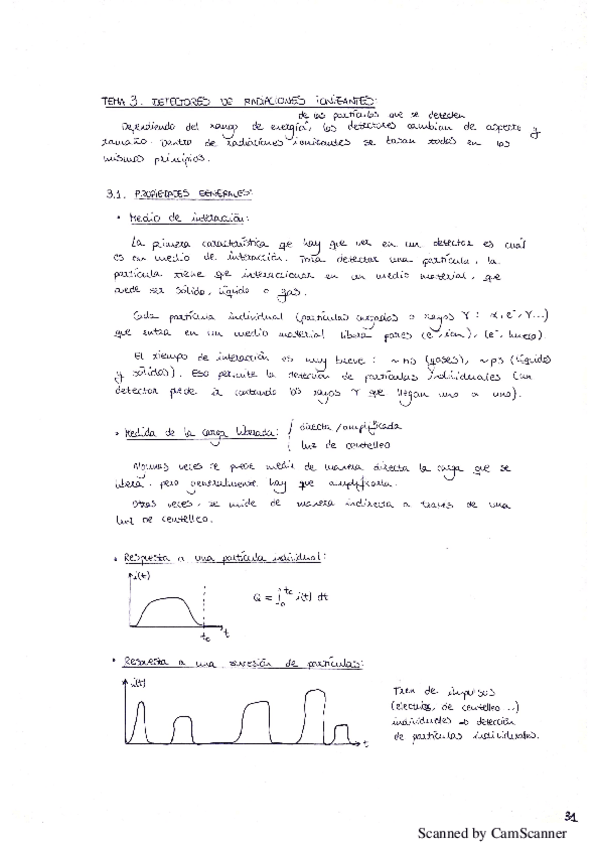 TEMA 3. DETECTORES DE RADIACIONES IONIZANTES:
de las partículas que se detecten
Dependiendo del rango de energía, los detectores cambian de aspecto y
tamaño. Dentro de radiaciones ionizantes se basan todos en los
mismos principios.
3.1. PROPIEDADES GENERALES:
• Medio de interacción:
La primera característica que hay que ver en un detector es cuál
es su medio de interacción. Para detectar una partícula, la
partícula tiene que interaccionar en un medio material, que
puede ser sólido, líquido o gas.
Cada partícula individual (partículas cargadas o rayos γ: α, e⁻, γ...)
que entra en un medio material libera pares (e⁻, ion), (e⁻, hueco).
El tiempo de interacción es muy breve: ~ns (gases), ~ps (líquidos
y sólidos). Eso permite la detección de partículas individuales (un
detector puede ir contando los rayos γ que llegan uno a uno).
• Medida de la carga liberada: { directa / amplificada
luz de centelleo
Algunas veces se puede medir de manera directa la carga que se
libera, pero generalmente hay que amplificarla.
Otras veces, se mide de manera indirecta a través de una
luz de centelleo.
• Respuesta a una partícula individual:
i(t)
Q = ∫₀^tc i(t) dt
tc t
• Respuesta a una sucesión de partículas:
i(t)
Tren de impulsos
(eléctricos, de centelleo ...)
individuales → detección
de partículas individuales.
t
31
Scanned by CamScanner